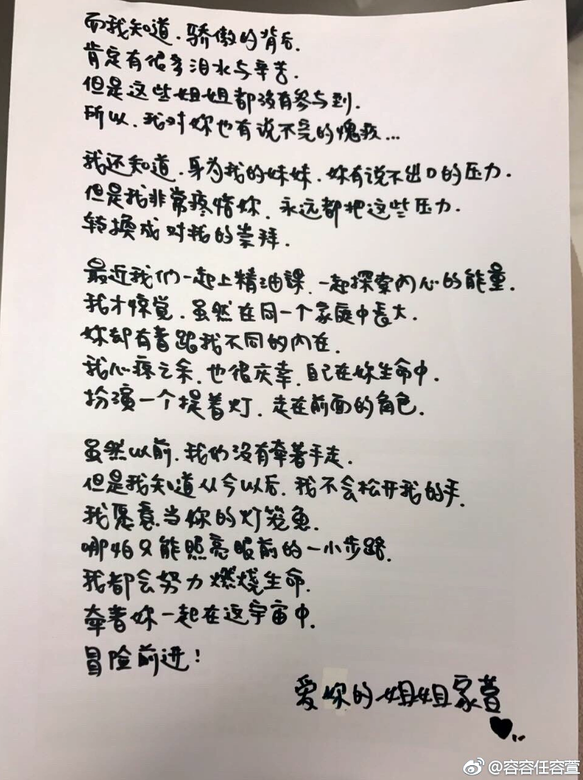 而我知道,骄傲的背后,
肯定有很多泪水与辛苦.
但是这些姐姐都没有参与到.
所以,我对妳也有说不完的愧疚...
我还知道,身为我的妹妹,妳有说不出口的压力.
但是我非常疼惜妳,永远都把这些压力.
转换成对我的崇拜.
最近我们一起上精油课,一起探索内心的能量.
我才惊觉,虽然在同一个家庭中长大.
妳却有着跟我不同的内在.
我心疼之余,也很庆幸,自己在妳生命中.
扮演一个提着灯,走在前面的角色.
虽然以前,我们没有牵著手走.
但是我知道从今以后,我不会松开我的手.
我愿意当你的灯笼鱼.
哪怕只能照亮眼前的一小步路.
我都会努力燃烧生命.
牵著妳一起在这宇宙中.
冒险前进!
爱妳的姐姐家萱
@容容任容萱